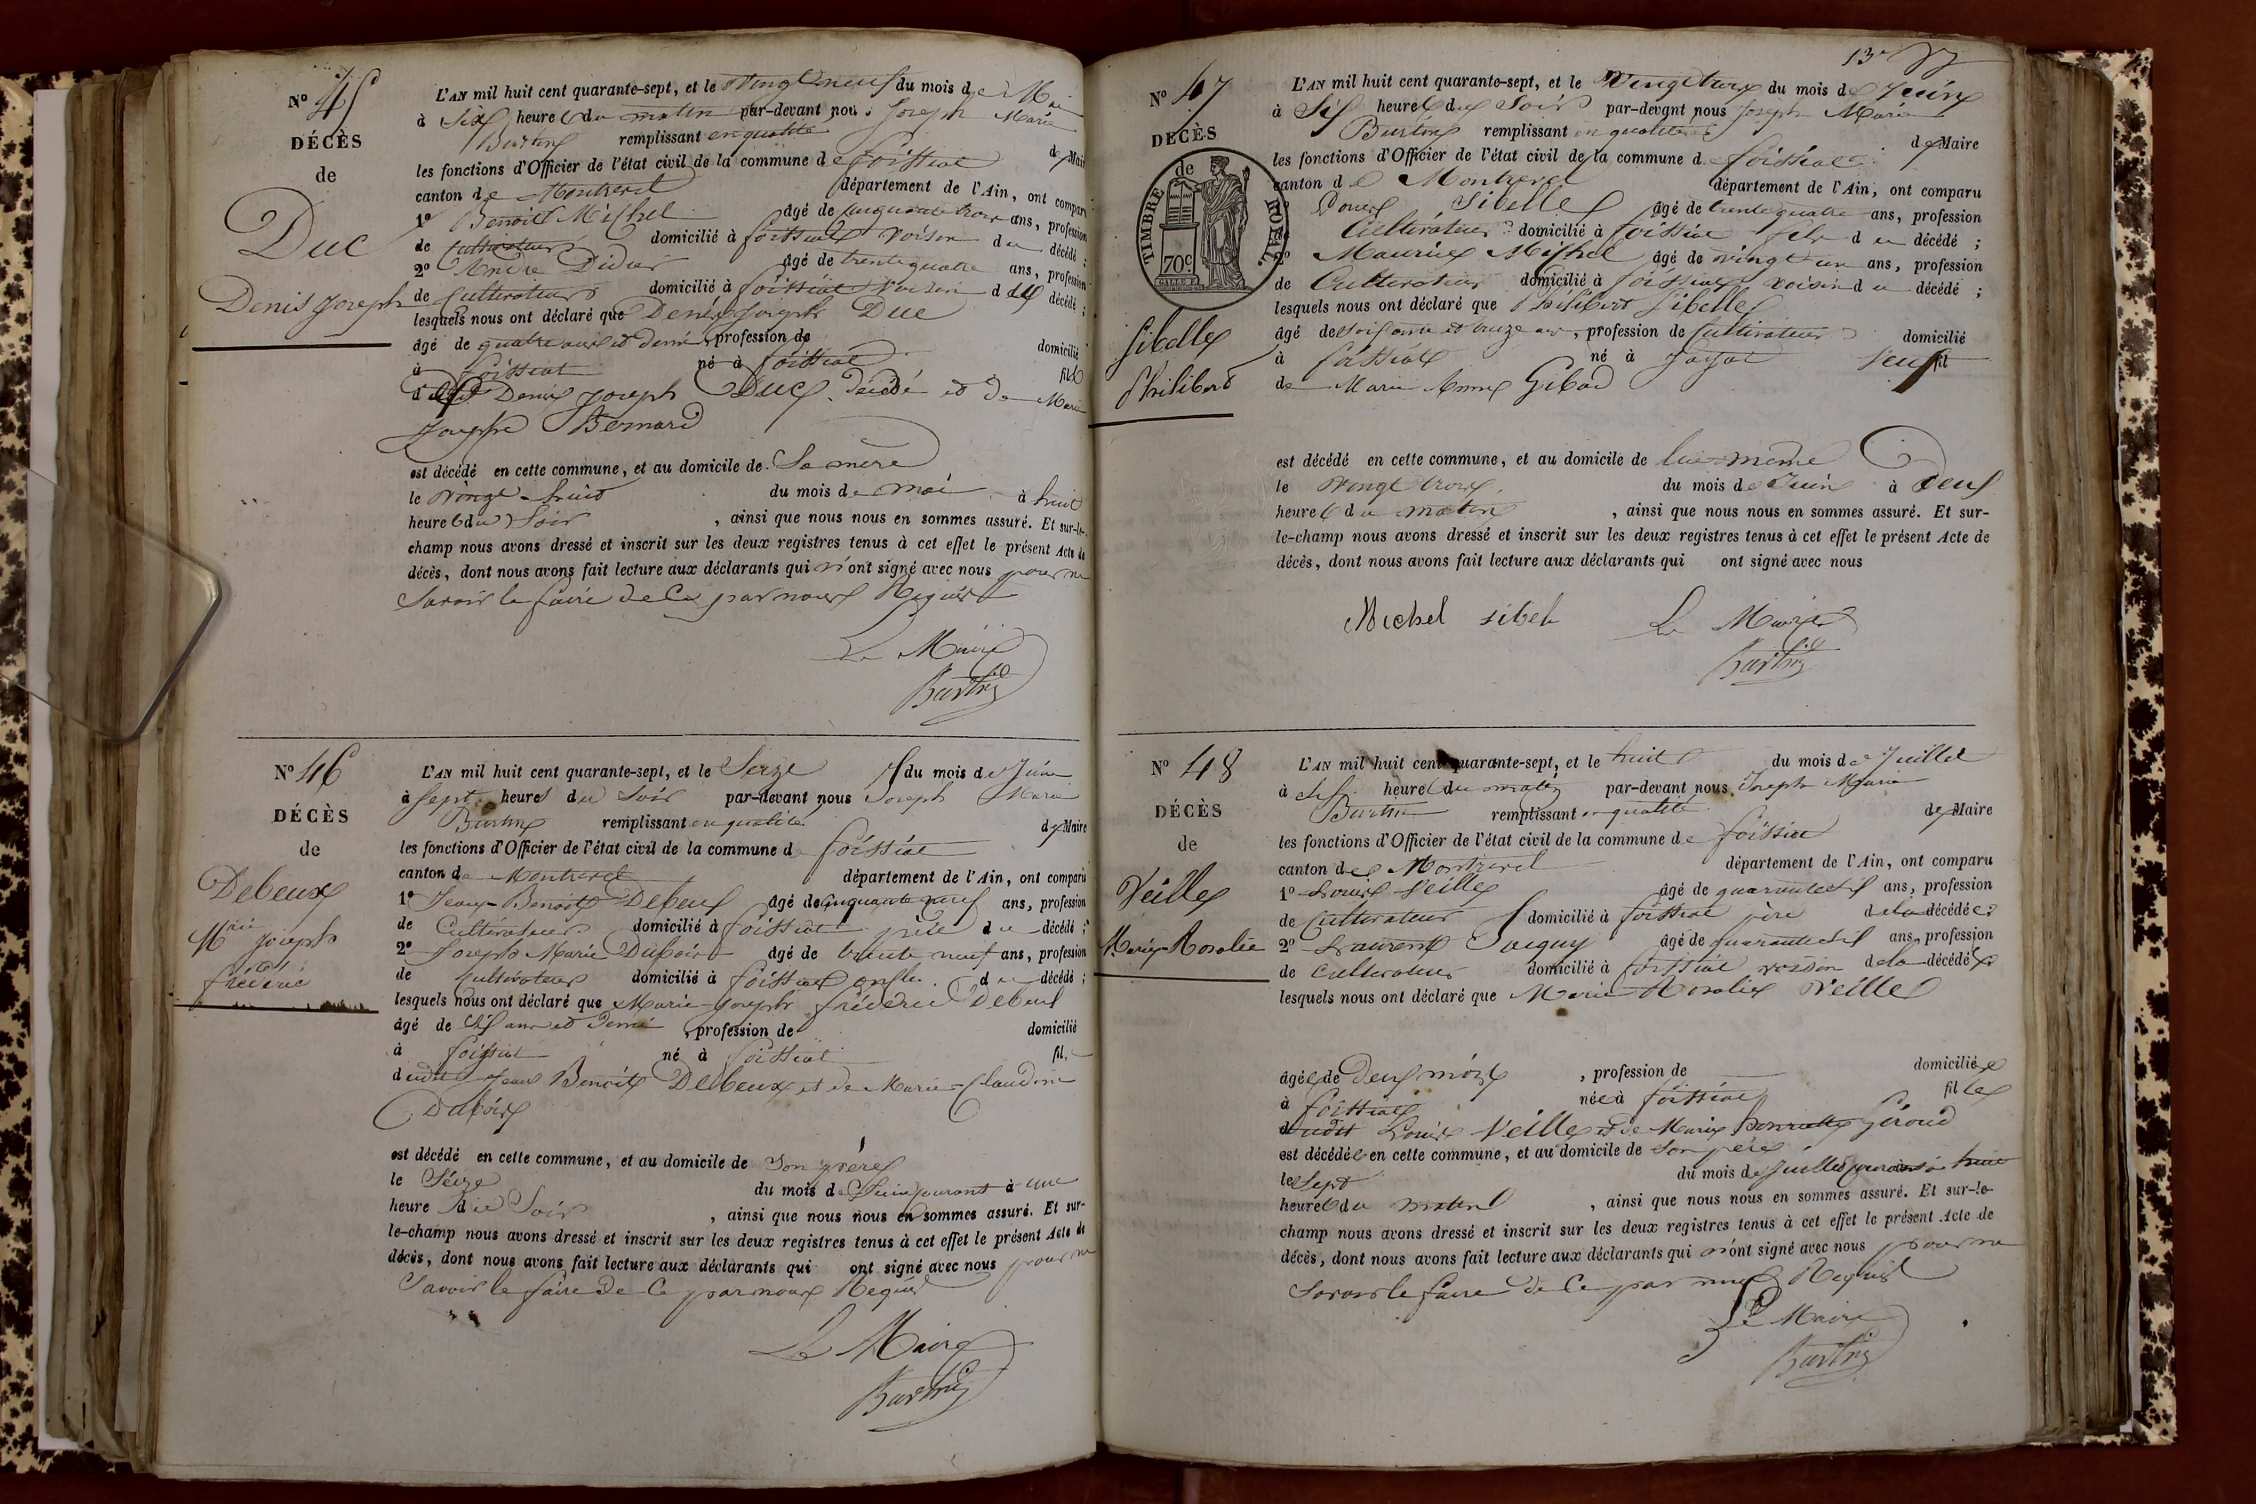 N° 45
DÉCÈS
de
Duc
Denis Joseph
L'AN mil huit cent quarante-sept, et le vingt neuf du mois de Mai
à Six heures du matin par-devant nous Joseph Marie
Burtin remplissant en qualité de Maire
les fonctions d'Officier de l'état civil de la commune de foissiat
canton de Montrevel département de l'Ain, ont comparu
1° Benoit Michel âgé de cinquante trois ans, profession
de Cultivateur domicilié à foissiat voisin du décédé ;
2° André Didier âgé de trente quatre ans, profession
de Cultivateur domicilié à foissiat voisin du décédé ;
lesquels nous ont déclaré que Denis Joseph Duc
âgé de quatre ans et demi, profession de domicilié
à foissiat né à foissiat fils
de Denis Joseph Duc, décédé et de Marie
Josephe Bernard
est décédé en cette commune, et au domicile de Sa mère
le vingt-huit du mois de mai à huit
heures du Soir, ainsi que nous nous en sommes assuré. Et sur-le-
champ nous avons dressé et inscrit sur les deux registres tenus à cet effet le présent Acte de
décès, dont nous avons fait lecture aux déclarants qui n'ont signé avec nous pour ne
Savoir le faire de Ce par nous Requis
Le Maire
Burtin
N° 46
DÉCÈS
de
Debeux
Mrie Joseph
frédéric
L'AN mil huit cent quarante-sept, et le Seize du mois de Juin
à Sept heures du Soir par-devant nous Joseph Marie
Burtin remplissant en qualité de Maire
les fonctions d'Officier de l'état civil de la commune de foissiat
canton de Montrevel département de l'Ain, ont comparu
1° Jean-Benoit Debeux âgé de cinquante neuf ans, profession
de Cultivateur domicilié à foissiat père du décédé ;
2° Joseph Marie Dubois âgé de trente neuf ans, profession
de Cultivateur domicilié à foissiat oncle du décédé ;
lesquels nous ont déclaré que Marie-Joseph frédéric Debeux
âgé de Six ans et demi, profession de domicilié
à foissiat né à foissiat fils
dudit Jean Benoit Debeux et de Marie-Claudine
Dubois
est décédé en cette commune, et au domicile de Son père
le Seize du mois de Juin courant à une
heure du Soir, ainsi que nous nous en sommes assuré. Et sur-
le-champ nous avons dressé et inscrit sur les deux registres tenus à cet effet le présent Acte de
décès, dont nous avons fait lecture aux déclarants qui ont signé avec nous pour ne
Savoir le faire de Ce par nous Requis
Le Maire
Burtin
13e
N° 47
DÉCÈS
de
TIMBRE ROYAL.
70c.
Sibelle
Philibert
L'AN mil huit cent quarante-sept, et le vingt trois du mois de Juin
à Six heures du Soir par-devant nous Joseph Marie
Burtin remplissant en qualité de Maire
les fonctions d'Officier de l'état civil de la commune de foissiat
canton de Montrevel département de l'Ain, ont comparu
Sibelle âgé de trente quatre ans, profession
Cultivateur domicilié à foissiat fils du décédé ;
2° Maurice Michel âgé de vingt un ans, profession
de Cultivateur domicilié à foissiat voisin du décédé ;
lesquels nous ont déclaré que Philibert Sibelle
âgé de soixante et treize ans, profession de Cultivateur domicilié
à foissiat né à Jayat veuf fil
de Marie Anne Gibod
est décédé en cette commune, et au domicile de lui-même
le vingt trois du mois de Juin à Deux
heures du matin, ainsi que nous nous en sommes assuré. Et sur-
le-champ nous avons dressé et inscrit sur les deux registres tenus à cet effet le présent Acte de
décès, dont nous avons fait lecture aux déclarants qui ont signé avec nous
Michel sibele Le Maire
Burtin
N° 48
DÉCÈS
de
Veille
Marie-Rosalie
L'AN mil huit cent quarante-sept, et le huit du mois de Juillet
à Six heures du matin par-devant nous Joseph Marie
Burtin remplissant en qualité de Maire
les fonctions d'Officier de l'état civil de la commune de foissiat
canton de Montrevel département de l'Ain, ont comparu
1° Louis Veille âgé de quarante six ans, profession
de Cultivateur domicilié à foissiat père de la décédée ;
2° Laurent âgé de quarante six ans, profession
de Cultivateur domicilié à foissiat voisin de la décédée
lesquels nous ont déclaré que Marie Rosalie Veille
âgée de Deux mois, profession de domiciliée
à foissiat née à foissiat fille
dudit Louis Veille et de Marie Henriette Géroud
est décédée en cette commune, et au domicile de Son père
le Sept du mois de Juillet courant à huit
heures du matin, ainsi que nous nous en sommes assuré. Et sur-le-
champ nous avons dressé et inscrit sur les deux registres tenus à cet effet le présent Acte de
décès, dont nous avons fait lecture aux déclarants qui n'ont signé avec nous pour ne
Savoir le faire de Ce par nous Requis
Le Maire
Burtin